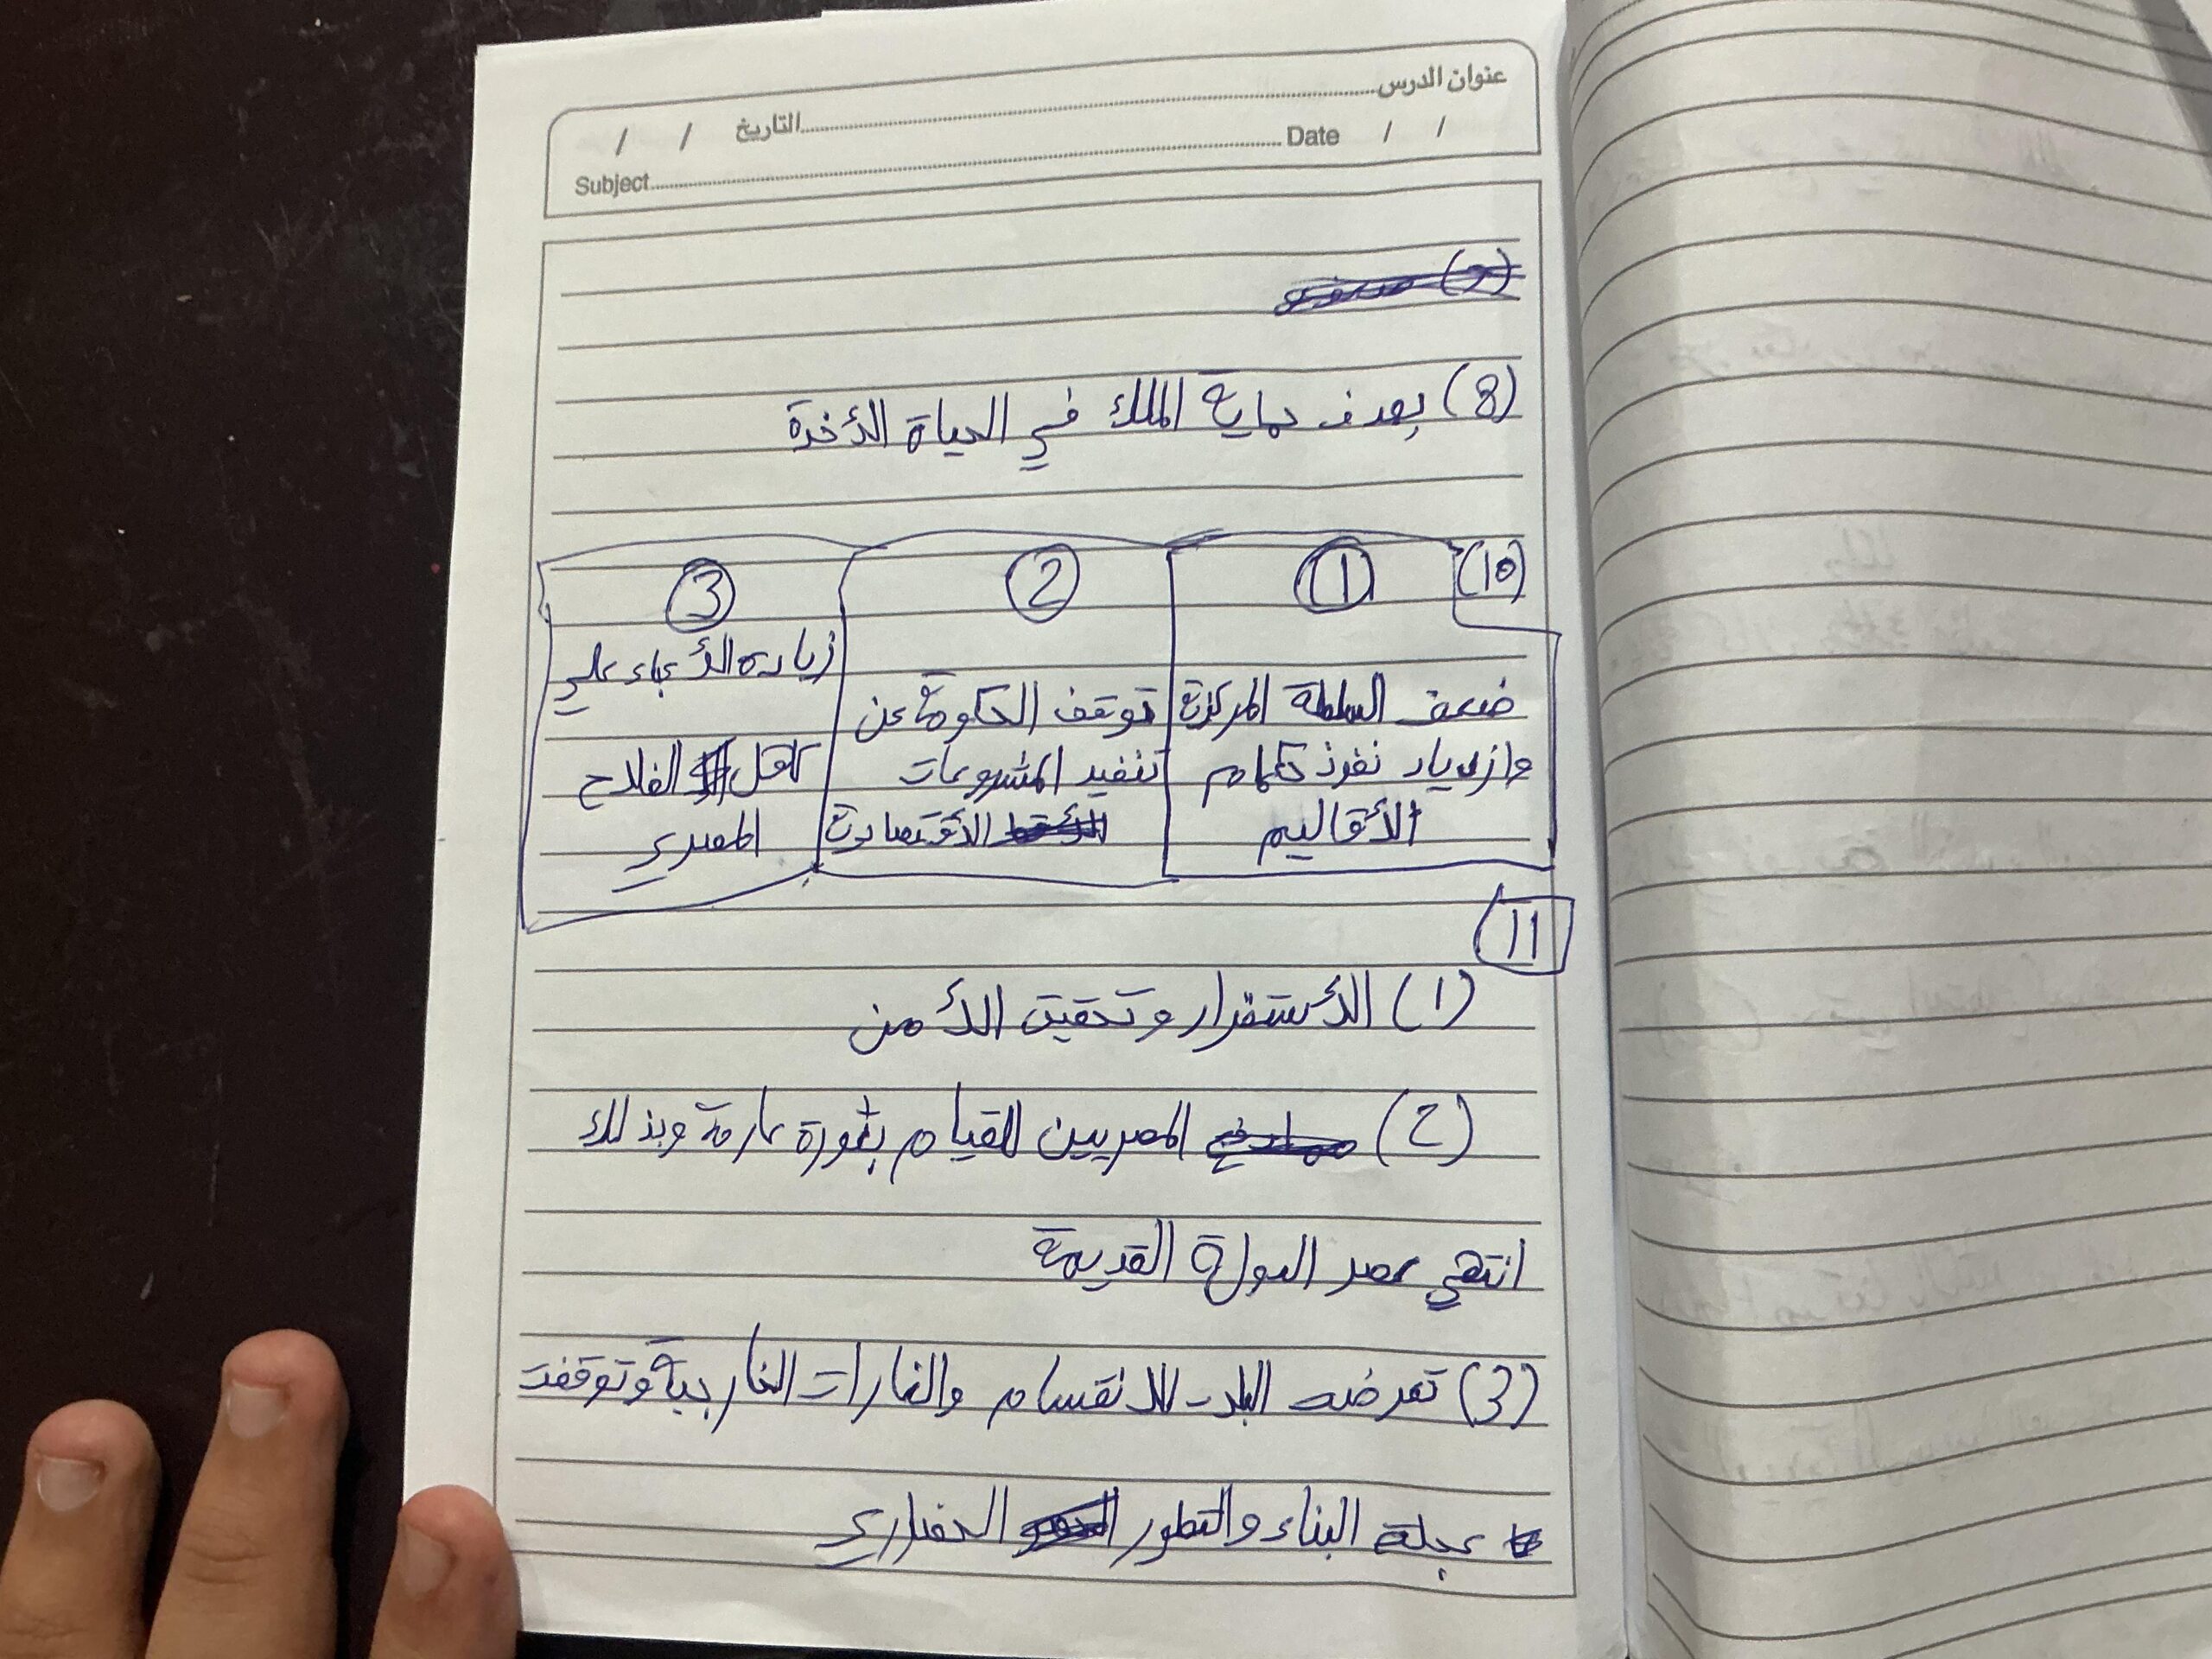 عنوان الدرس
التاريخ / /
Date / /
Subject
(8) بهدف حماية الملك في الحياة الأخرة
(10)
①
ضعف السلطة المركزية
وازدياد نفوذ حكام
الأقاليم
②
توقف الحكومة عن
تنفيد المشروعات
الأقتصادية
③
زيادة الأعباء علي
كاهل الفلاح
المصري
11
(1) الأستقرار وتحقيق الأمن
(2) المصريين للقيام بثورة عارمة وبذلك
انتهي عصر الدولة القديمة
(3) تعرضت البلاد للانقسام والغارات الخارجية وتوقفت
عجلة البناء والتطور الحضاري